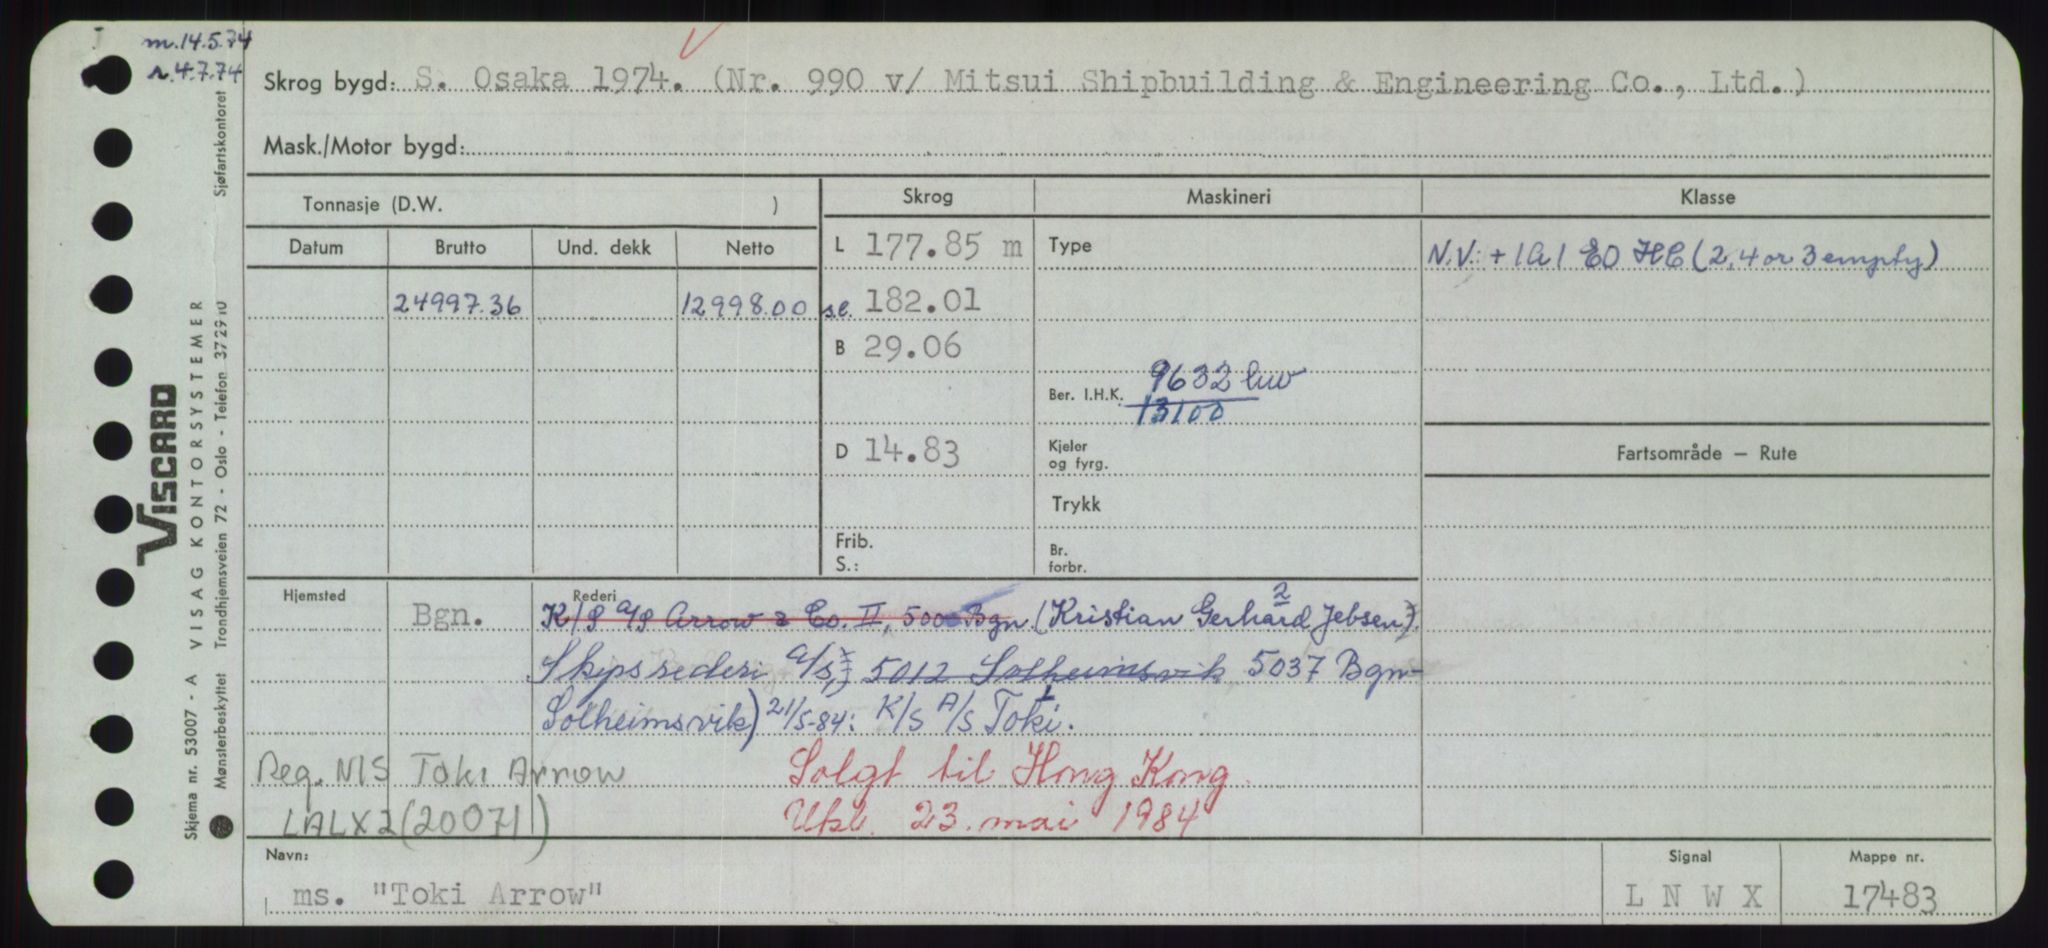 m. 14.5.74
r. 4.7.74
Skrog bygd: S. Osaka 1974. (Nr. 990 v/ Mitsui Shipbuilding & Engineering Co., Ltd.)
Mask./Motor bygd:
Tonnasje (D.W. )
Skrog
Maskineri
Klasse
Datum
Brutto
Und. dekk
Netto
L 177.85 m
Type
N.V.: + 1A1 EO HC (2,4 or 3 empty)
24997.36
12998.00
s.l. 182.01
B 29.06
Ber. I.H.K. 9632 kw
13100
D 14.83
Kjeler
og fyrg.
Fartsområde — Rute
Trykk
Frib.
S.:
Br.
forbr.
Hjemsted
Bgn.
Rederi
K/S A/S Arrow & Co. II, 5000 Bgn. (Kristian Gerhard Jebsen
2
Skipsrederi A/S, 5012 Solheimsvik 5037 Bgn-
Solheimsvik) 21/5-84: K/S A/S Toki.
Reg. NIS Toki Arrow
LALX2 (20071)
Solgt til Hong Kong.
Utkl. 23. mai 1984
Navn:
ms. "Toki Arrow"
Signal
L N W X
Mappe nr.
17483
VISCARD
Skjema nr. 53007 - A VISAG KONTORSYSTEMER
Mønsterbeskyttet Trondhjemsveien 72 - Oslo - Telefon 372910 Sjøfartskontoret